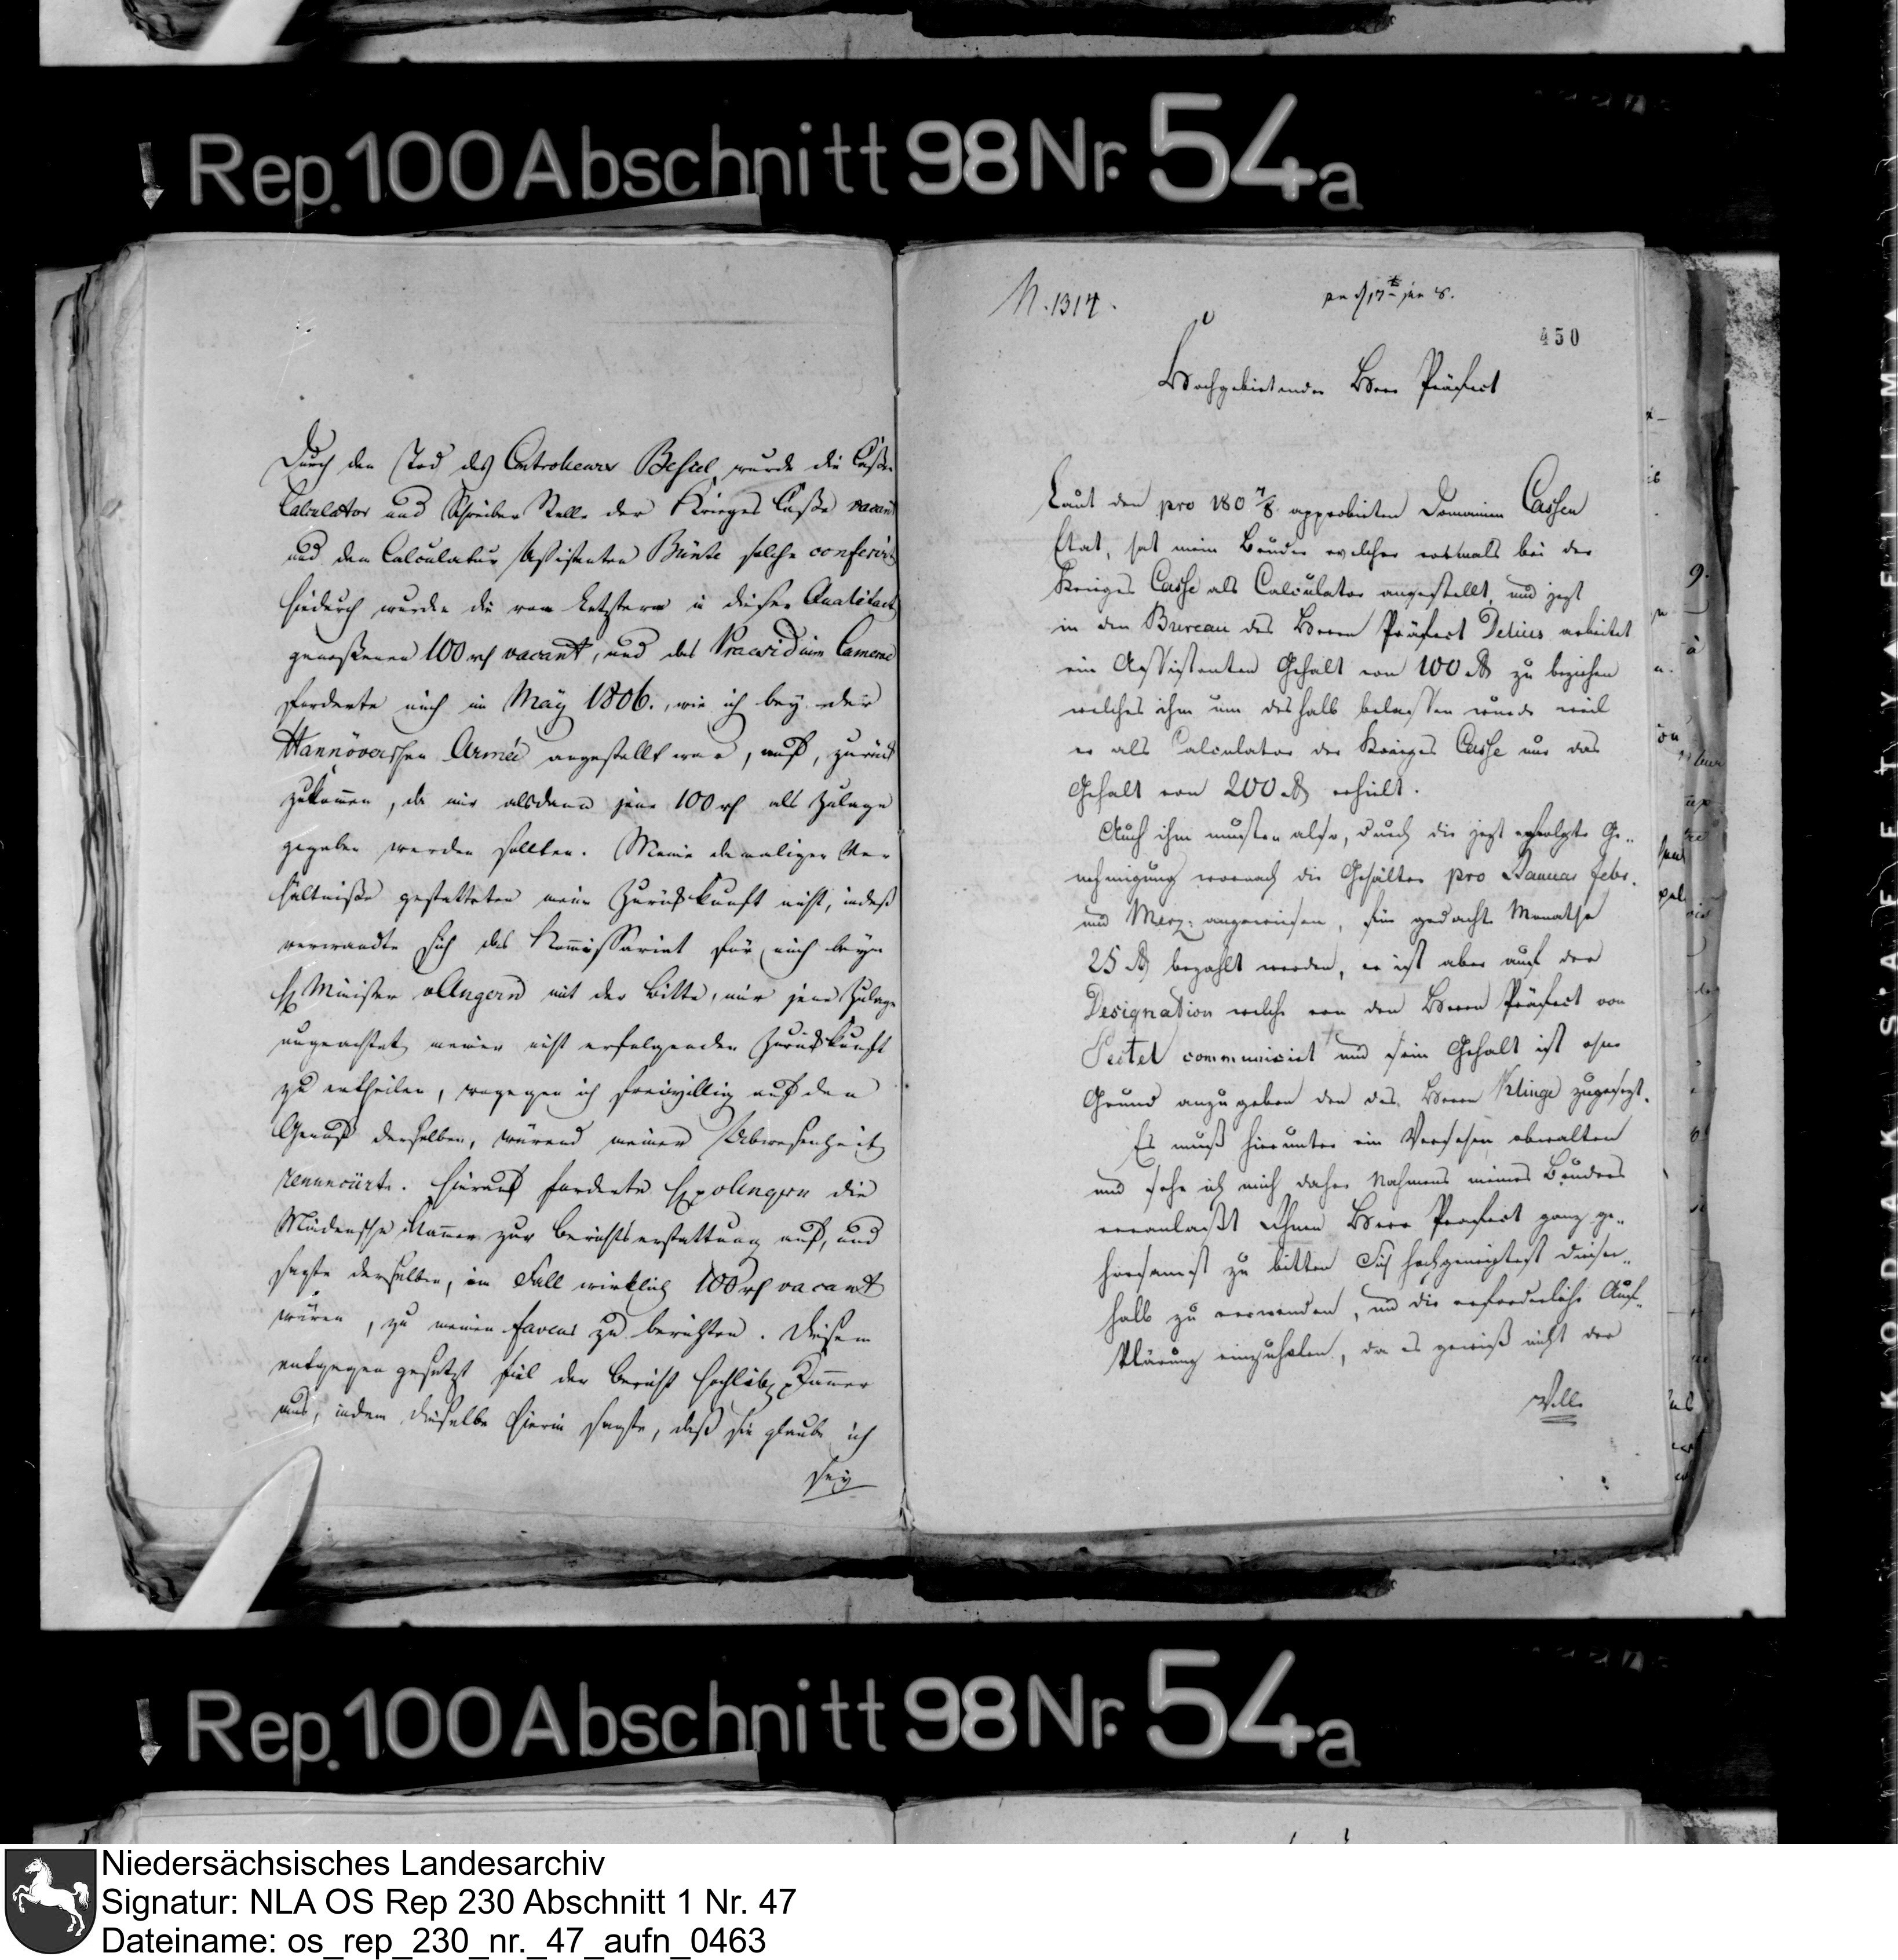 Rep. 100 Abschnitt 98 Nr. 54a
Durch den Tod des Controlleurs Bessel wurde die Caßen
Calculator und Schreiber Stelle der Krieges Caße vacant
und dem Calculatur Assistenten Bünte solche conferirt
hiedurch wurden die vom Letztern in dieser Qualitaet
genoßenen 100 rh vacant, und das Praesidium Camerae
forderte mich im May 1806., wie ich bey der
Hannöverschen Armée angestellt war, auf, zurück
zukommen, da mir alsdann jene 100 rh als Zulage
gegeben werden sollten. Meine damaligen Ver
hältniße gestatteten meine Zurückkunft nicht, indeß
verwandte sich das Kommissariat für mich beym
H. Minister v Angern mit der Bitte, mir jene Zulage
ungeachtet meiner nicht erfolgenden Zurückkunft
zu ertheilen, wogegen ich freiwillig auf den
Genuß derselben, während meiner Abwesenheit
renuncürte. Hierauf forderte H. v Angern die
Mindensche Kammer zur Berichtserstattung auf, und
sagte derselben, im Fall wirklich 100 rh vacant
wären, zu meinen faveur zu berichten. Diesem
entgegen gesetzt fiel der Bericht hochlöbl. Kammer
aus, indem dieselbe hierin sagte, daß sie glaube ich
sey
N. 1314.
450
Hochgebietender Herr Präfect
Laut den pro 180 7/8 approbirten Domainen Cassen
Etat, hat mein Bruder welcher vormals bei der
Krieges Casse als Calculator angestellt, und jezt
in den Bureau des Herrn Präfect Delius arbeitet
ein Assistenten Gehalt von 100 rh zu beziehen
welches ihm um deshalb belassen wurde weil
er als Calculator der Krieges Casse nur das
Gehalt von 200 rh erhielt.
Auch ihm mußten also, durch die jezt erfolgte Ge-
nehmigung wornach die Gehälter pro Januar Febr.
und Merz. angewiesen, für gedachte Monathe
25 rh bezahlt werden, er ist aber auf der
Designation welche von den Herrn Präfect von
Pestel communicirt und sein Gehalt ist ohne
Grund anzugeben den des Herrn Klinge zugesezt.
Es muß hierunter ein Versehen obwalten
und sehe ich mich daher Nahmens meines Bruders
veranlaßt Ihnen Herr Praefect ganz ge-
horsamst zu bitten Sich hochgeneigtest dieser-
halb zu verwenden, und die erforderliche Auf-
klärung einzuholen, da es gewiß nicht der
Wille
Rep. 100 Abschnitt 98 Nr. 54a
KODAK SAFETY FILM
Niedersächsisches Landesarchiv
Signatur: NLA OS Rep 230 Abschnitt 1 Nr. 47
Dateiname: os_rep_230_nr._47_aufn_0463